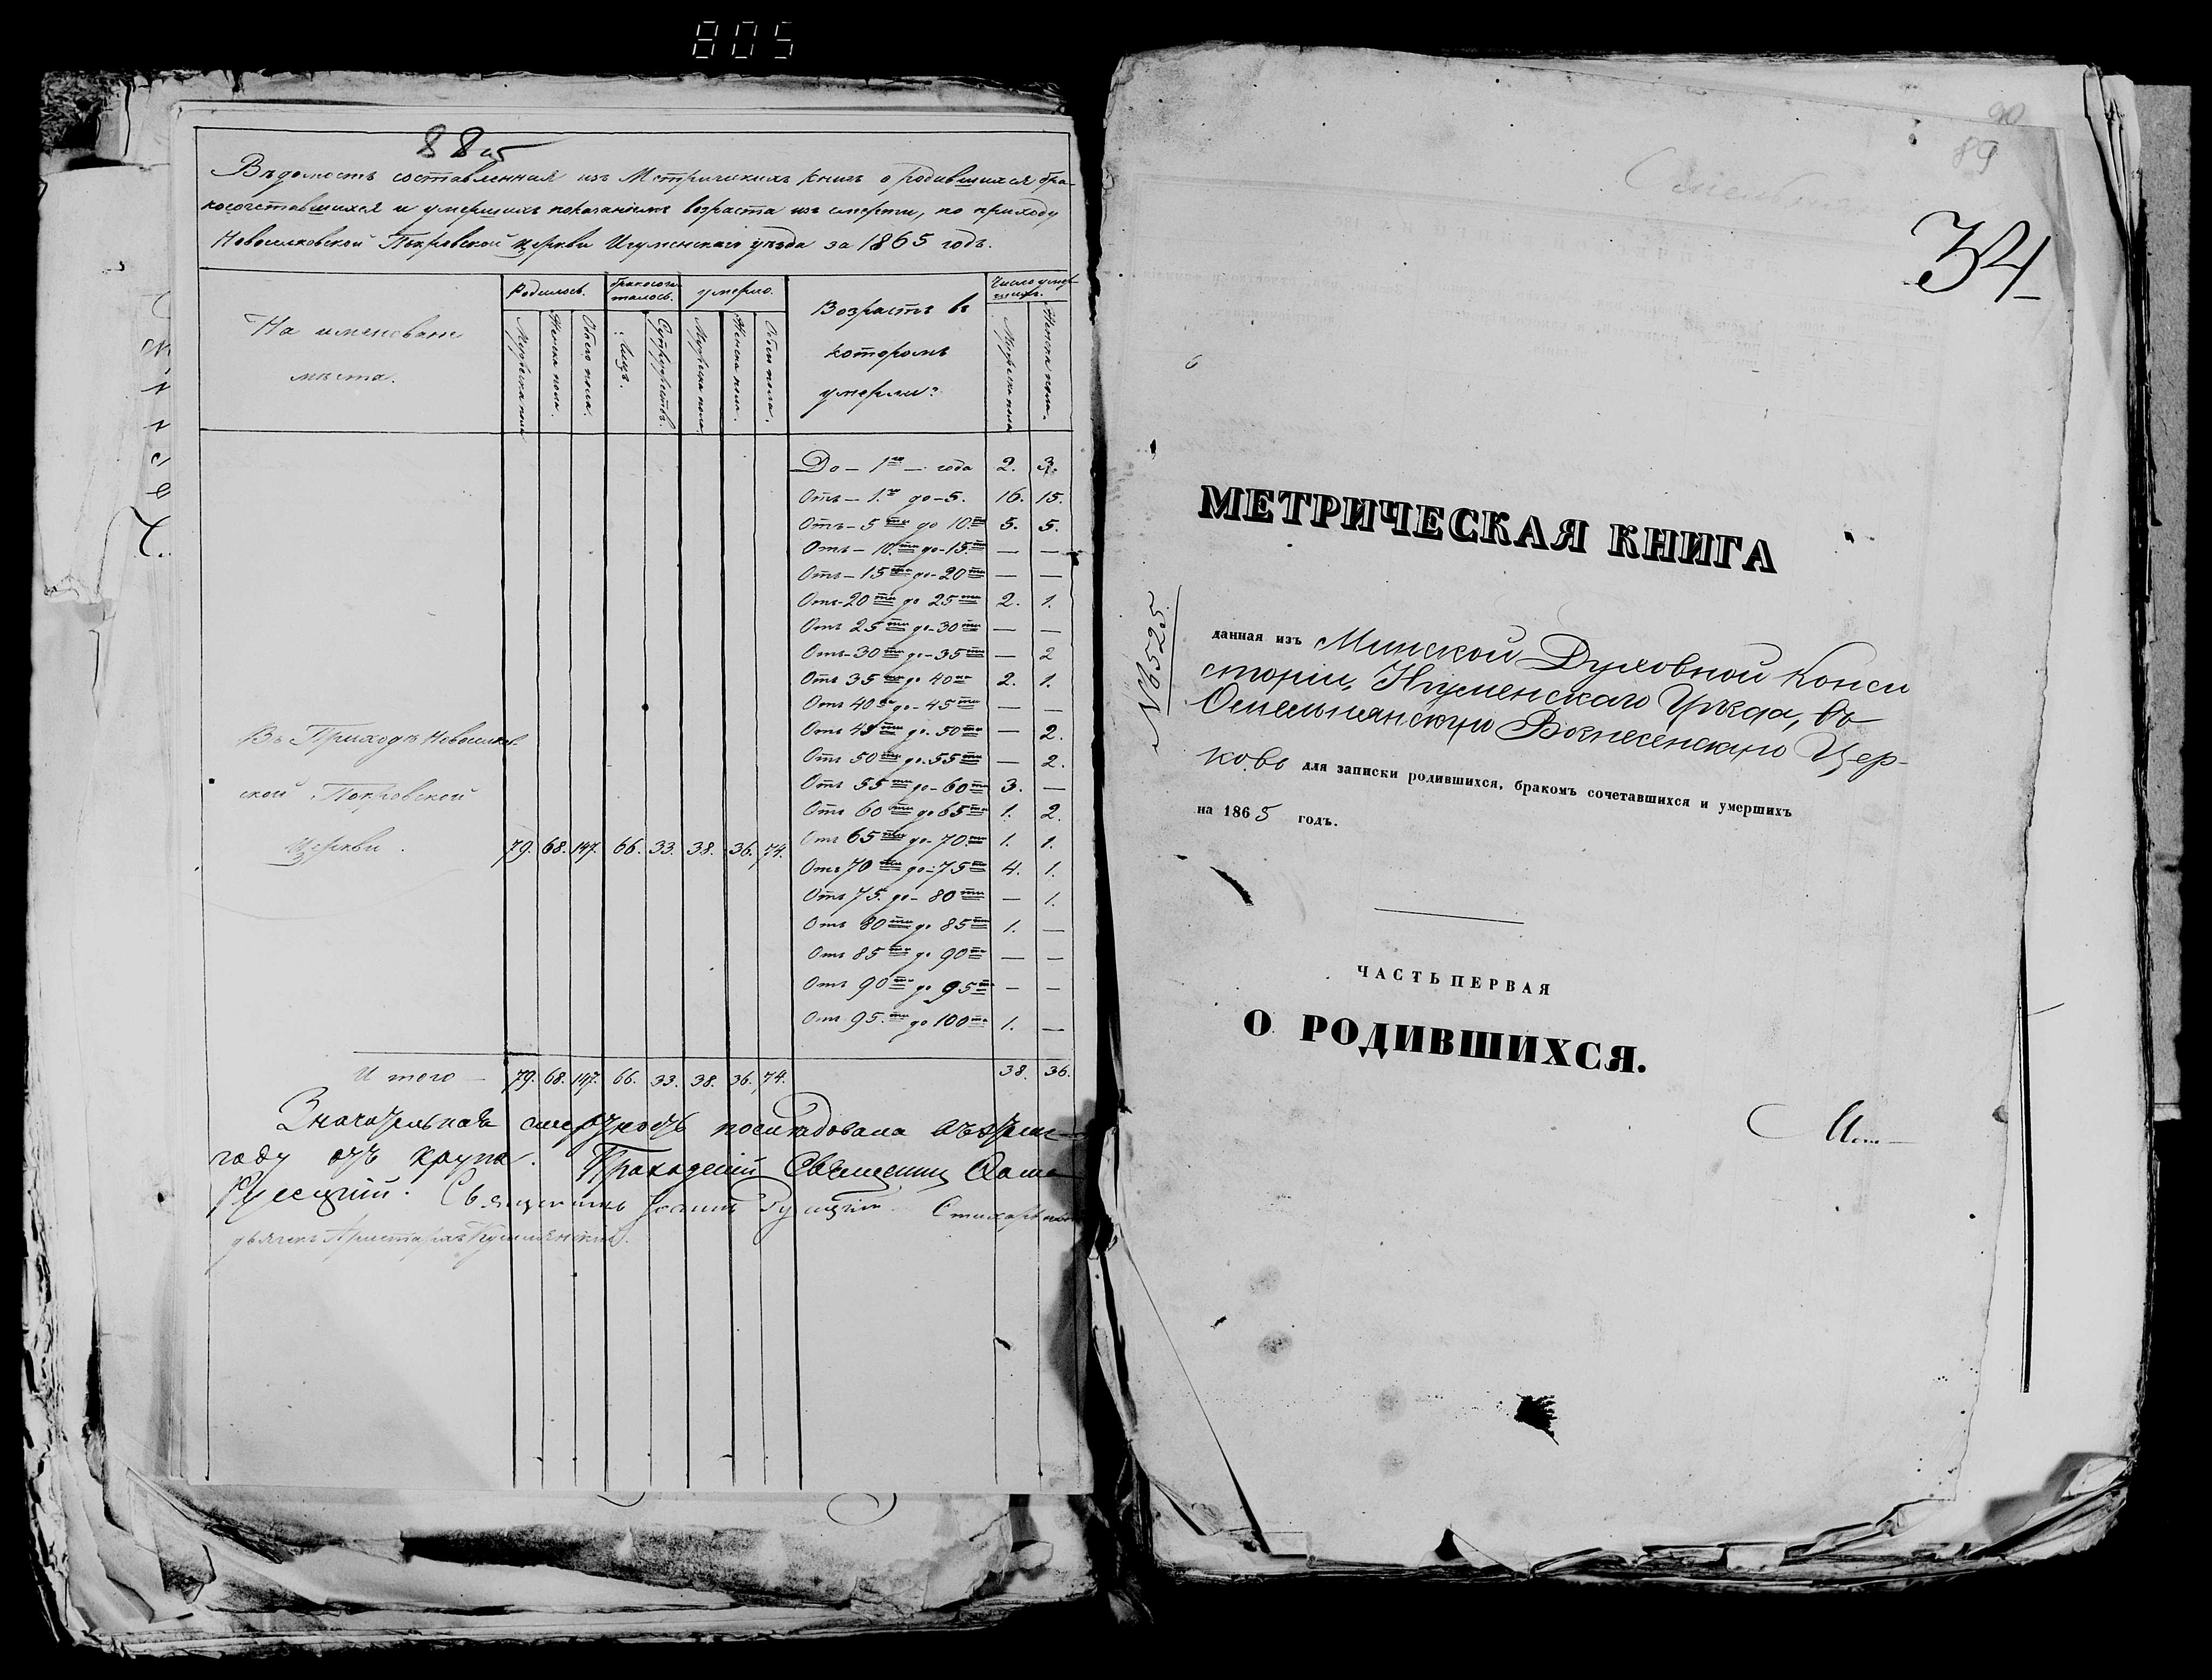 805
88 об
Вѣдомость составленная изъ Метрическихъ книгъ о родившихся бра-
косочетавшихся и умершихъ показаніемъ возраста ихъ смерти, по приходу
Новоселковской Покровской церкви Игуменскаго уѣзда за 1865 годъ.
На именованіе мѣста.
Родилось.
бракосоче-
талось.
умерло.
Возрастъ въ
которомъ
умерли?
Число умер-
шихъ.
Мужеска пола
Женска пола.
Обоего пола.
Лицъ.
Супружествъ.
Мужеска пола
Женска пола.
Обоего пола.
Мужеска пола
Женска пола.
До — 1го — года 2. 3.
Отъ — 1го до — 5. 16. 15.
Отъ — 5ти до 10ти 5. 5.
Отъ — 10ти до — 15ти — —
Отъ — 15ти до — 20ти — —
Отъ — 20ти до 25ти 2. 1.
Отъ 25ти до — 30ти — —
Отъ — 30ти до — 35ти — 2
Отъ 35ти до 40ка 2. 1.
Отъ 40ка до — 45ти — —
Отъ 45ти до — 50ти — 2.
Отъ 50ти до 55ти — 2.
Отъ 55ти до — 60ти 3. —
Отъ 60ти до 65ти 1. 2.
Отъ 65ти до — 70ти 1. 1.
Отъ 70ти до — 75ти 4. 1.
Отъ 75. до — 80ти — 1.
Отъ 80ти до 85ти 1. —
Отъ 85ти до 90ти — —
Отъ 90то до 95ти — —
Отъ 95ти до 100та 1. —
Въ Приходѣ Новоселков-
ской Покровской
Церкви. 79. 68. 147. 66. 33. 38. 36. 74.
Итого — 79. 68. 147. 66. 33. 38. 36. 74. 38. 36.
Значительная смертность послѣдовала въ этомъ
году отъ крупа. Священникъ
Священникъ
дьячекъ Аристархъ
90
89
34
МЕТРИЧЕСКАЯ КНИГА
№6525.
данная изъ Минской Духовной Конси
сторіи, Игуменскаго Уѣзда, въ
Омельнянскую Вознесенскую Цер-
ковь для записки родившихся, бракомъ сочетавшихся и умершихъ
на 1865 годъ.
ЧАСТЬ ПЕРВАЯ
О РОДИВШИХСЯ.